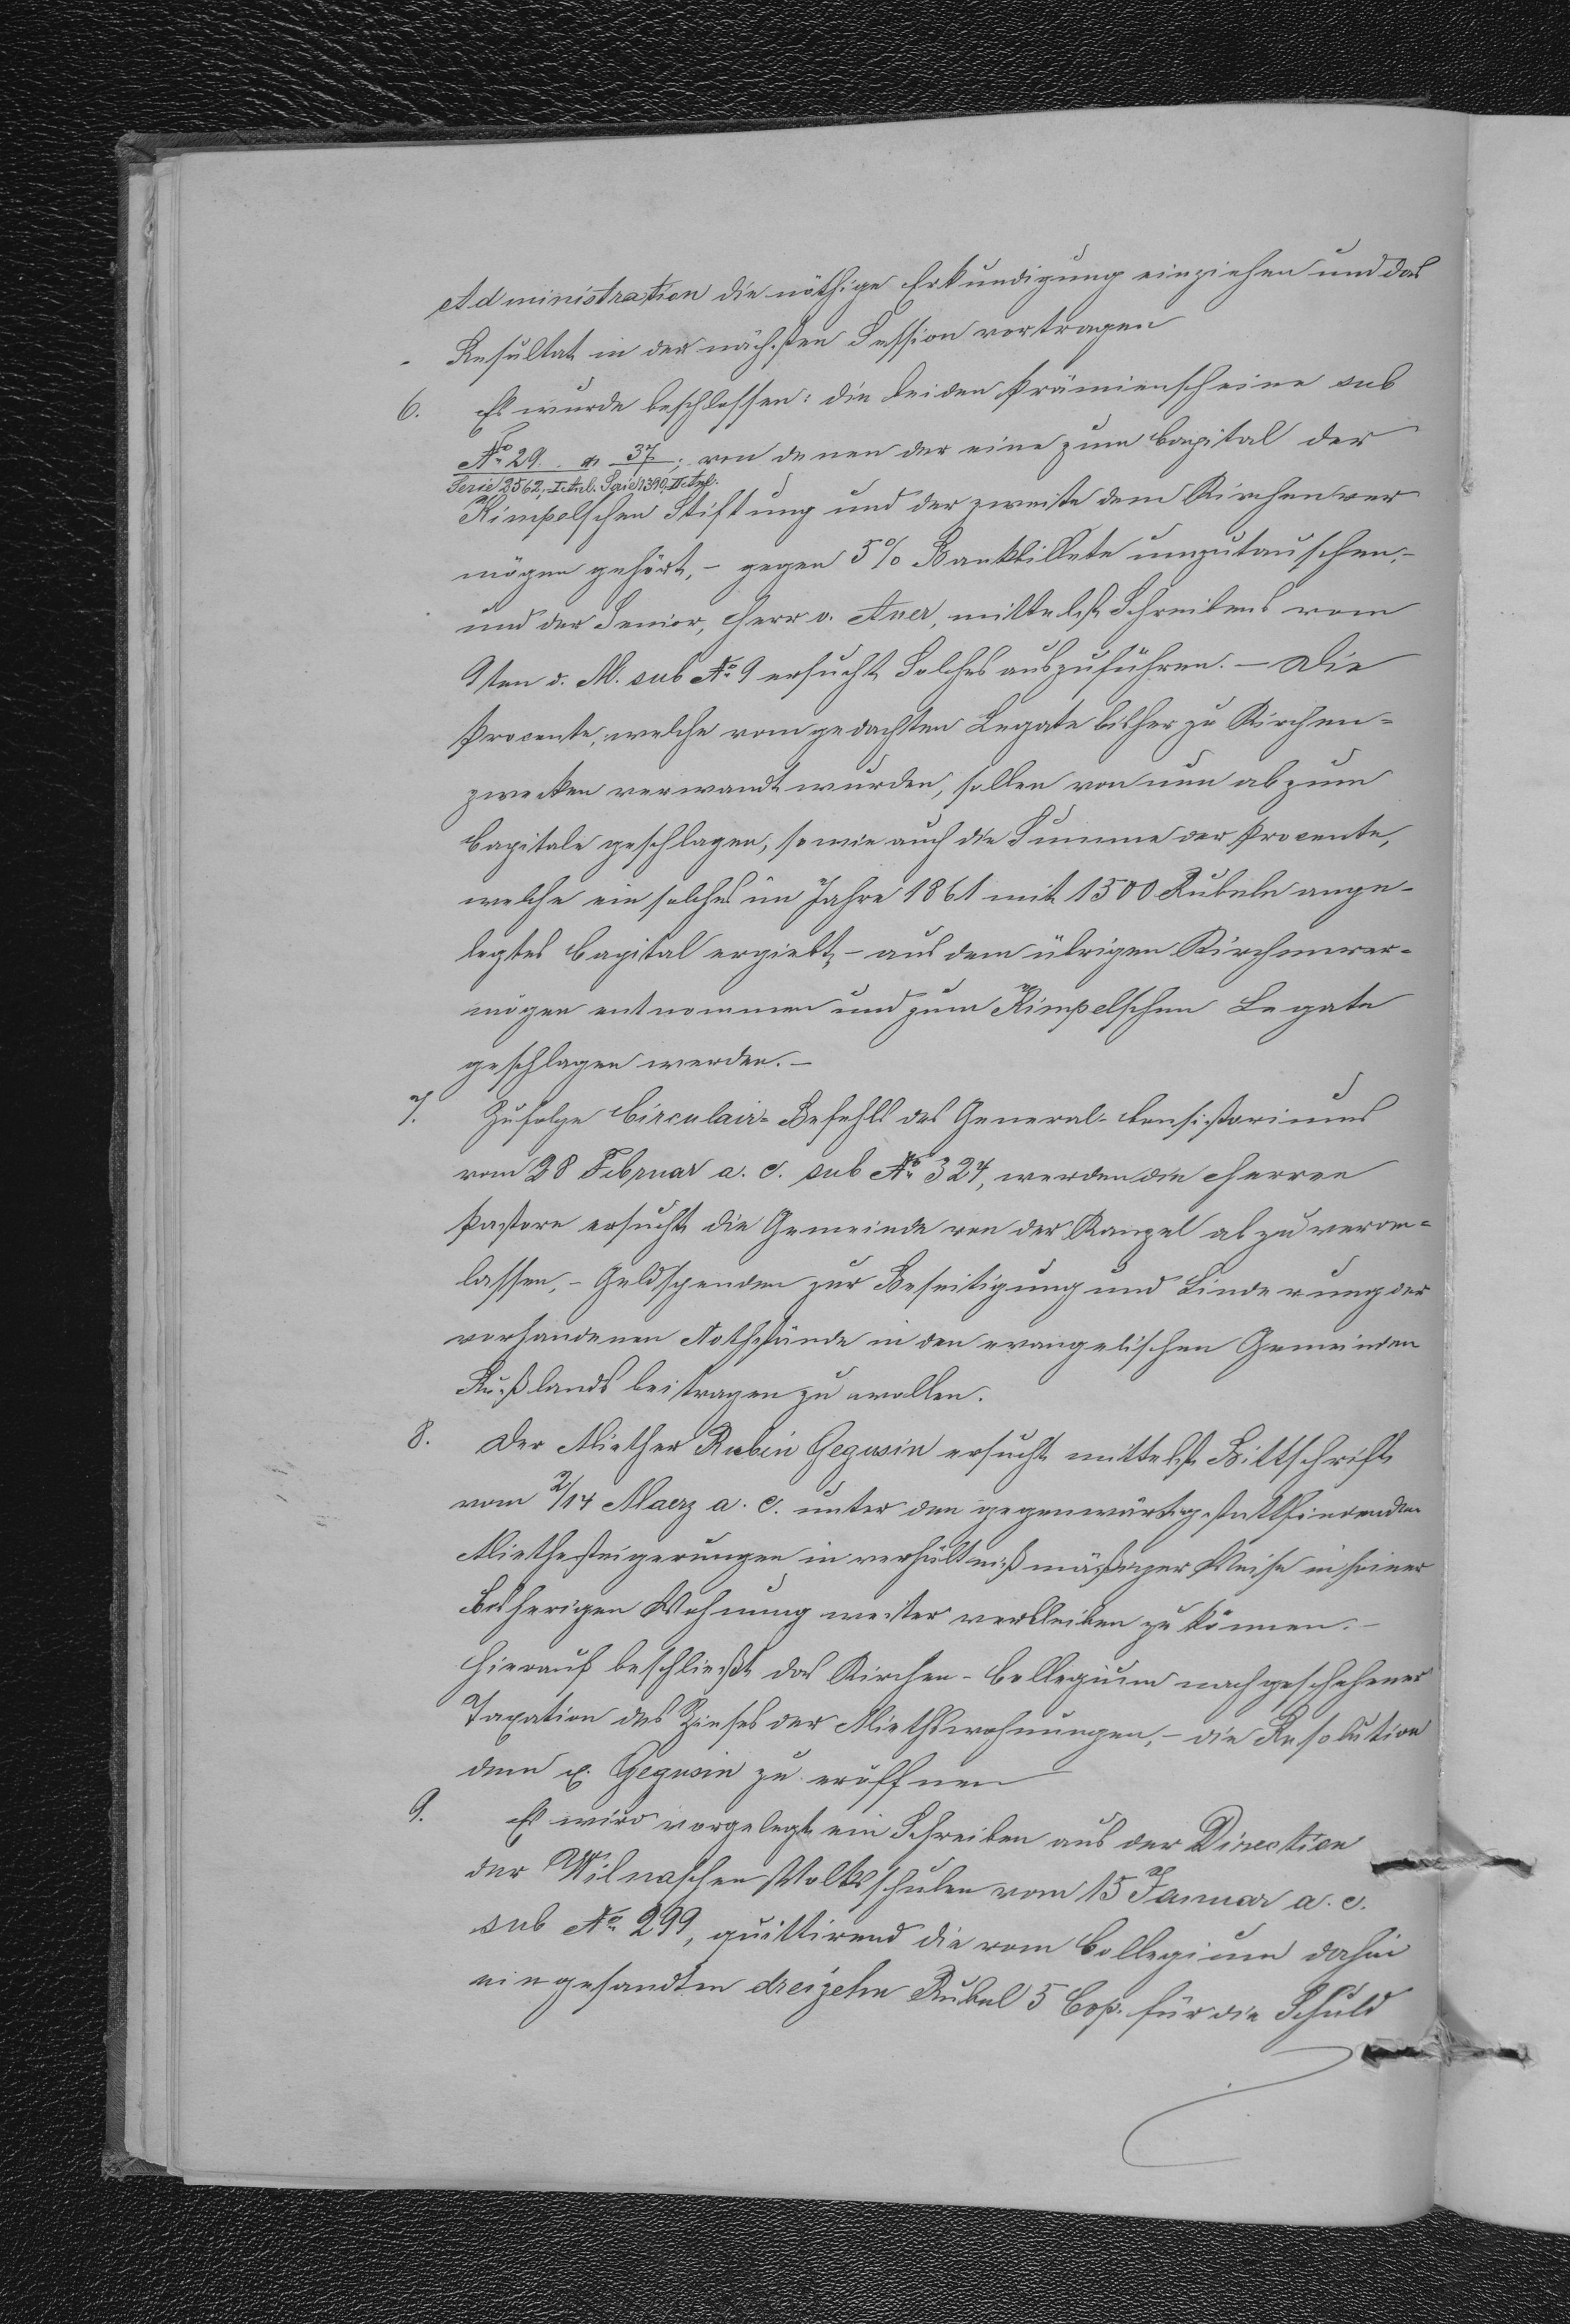 Administration die nöthige Erkundigung einziehen und das
Resultat in der nächsten Session vortragen
6. Es wurde beschlossen: die beiden Prämienscheine sub
No 29 & 37; von denen der eine zum Capital der
Serie 2562, I Anl. Serie 1390, II Anl.
Kimpelschen Stiftung und der zweite dem Kirchenver
mögen gehört, – gegen 5% Bankbillete umzutauschen, –
und der Senior, Herr v. Auer, mittelst Schreibens vom
9ten d. M. sub No 9 ersucht Solches auszuführen. – Die
Procente, welche vom gedachten Legate bisher zu Kirchen-
zwecken verwandt wurden, sollen von nun ab zum
Capitale geschlagen, sowie auch die Summe der Procente,
welche ein solches im Jahre 1861 mit 1500 Rubeln ange-
legtes Capital ergiebt, – aus dem übrigen Kirchenver-
mögen entnommen und zum Kimpelschen Legate
geschlagen werden. –
7. Zufolge Circulair-Befehls des General-Consistoriums
vom 28 Februar a. c. sub No 324, werden die Herren
Pastore ersucht die Gemeinde von der Kanzel ab zu veran-
lassen, – Geldspenden zur Beseitigung und Linderung der
vorhandenen Nothstände in den evangelischen Gemeinden
Rußlands beitragen zu wollen.
8. Der Miether Rubin Gegusin ersucht mittelst Bittschrift
vom 2/14 Maerz a. c. unter den gegenwärtig stattfindenden
Miethesteigerungen in verhältnißmäßiger Weise in seiner
bisherigen Wohnung weiter verbleiben zu können. –
Hierauf beschließt das Kirchen-Collegium nach geschehener
Taxation des Zinses der Miethswohnungen, – die Resolution
dem p. Gegusin zu eröffnen
9. Es wird vorgelegt ein Schreiben aus der Direction
der Wilnaschen Volksschulen vom 15 Januar a. c.
sub No 299, quittirend die vom Collegium dahin
eingesandten dreizehn Rubel 5 Cop. für die Schuld